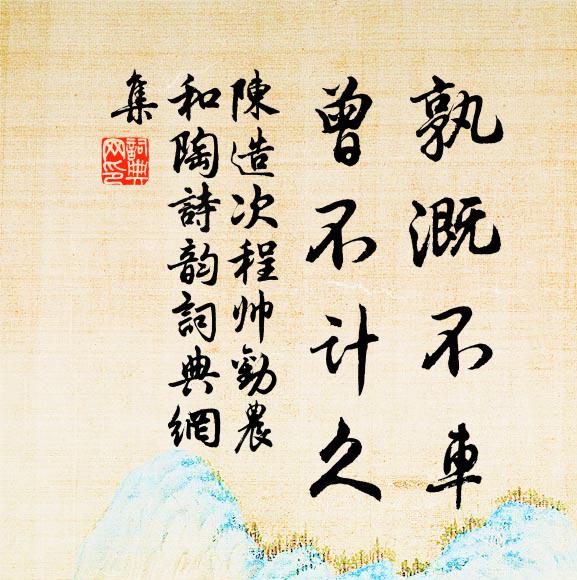 孰溉不車
曾不计久
陳造次程帅勸農
和陶詩韵詞典網
集
詞典
网印